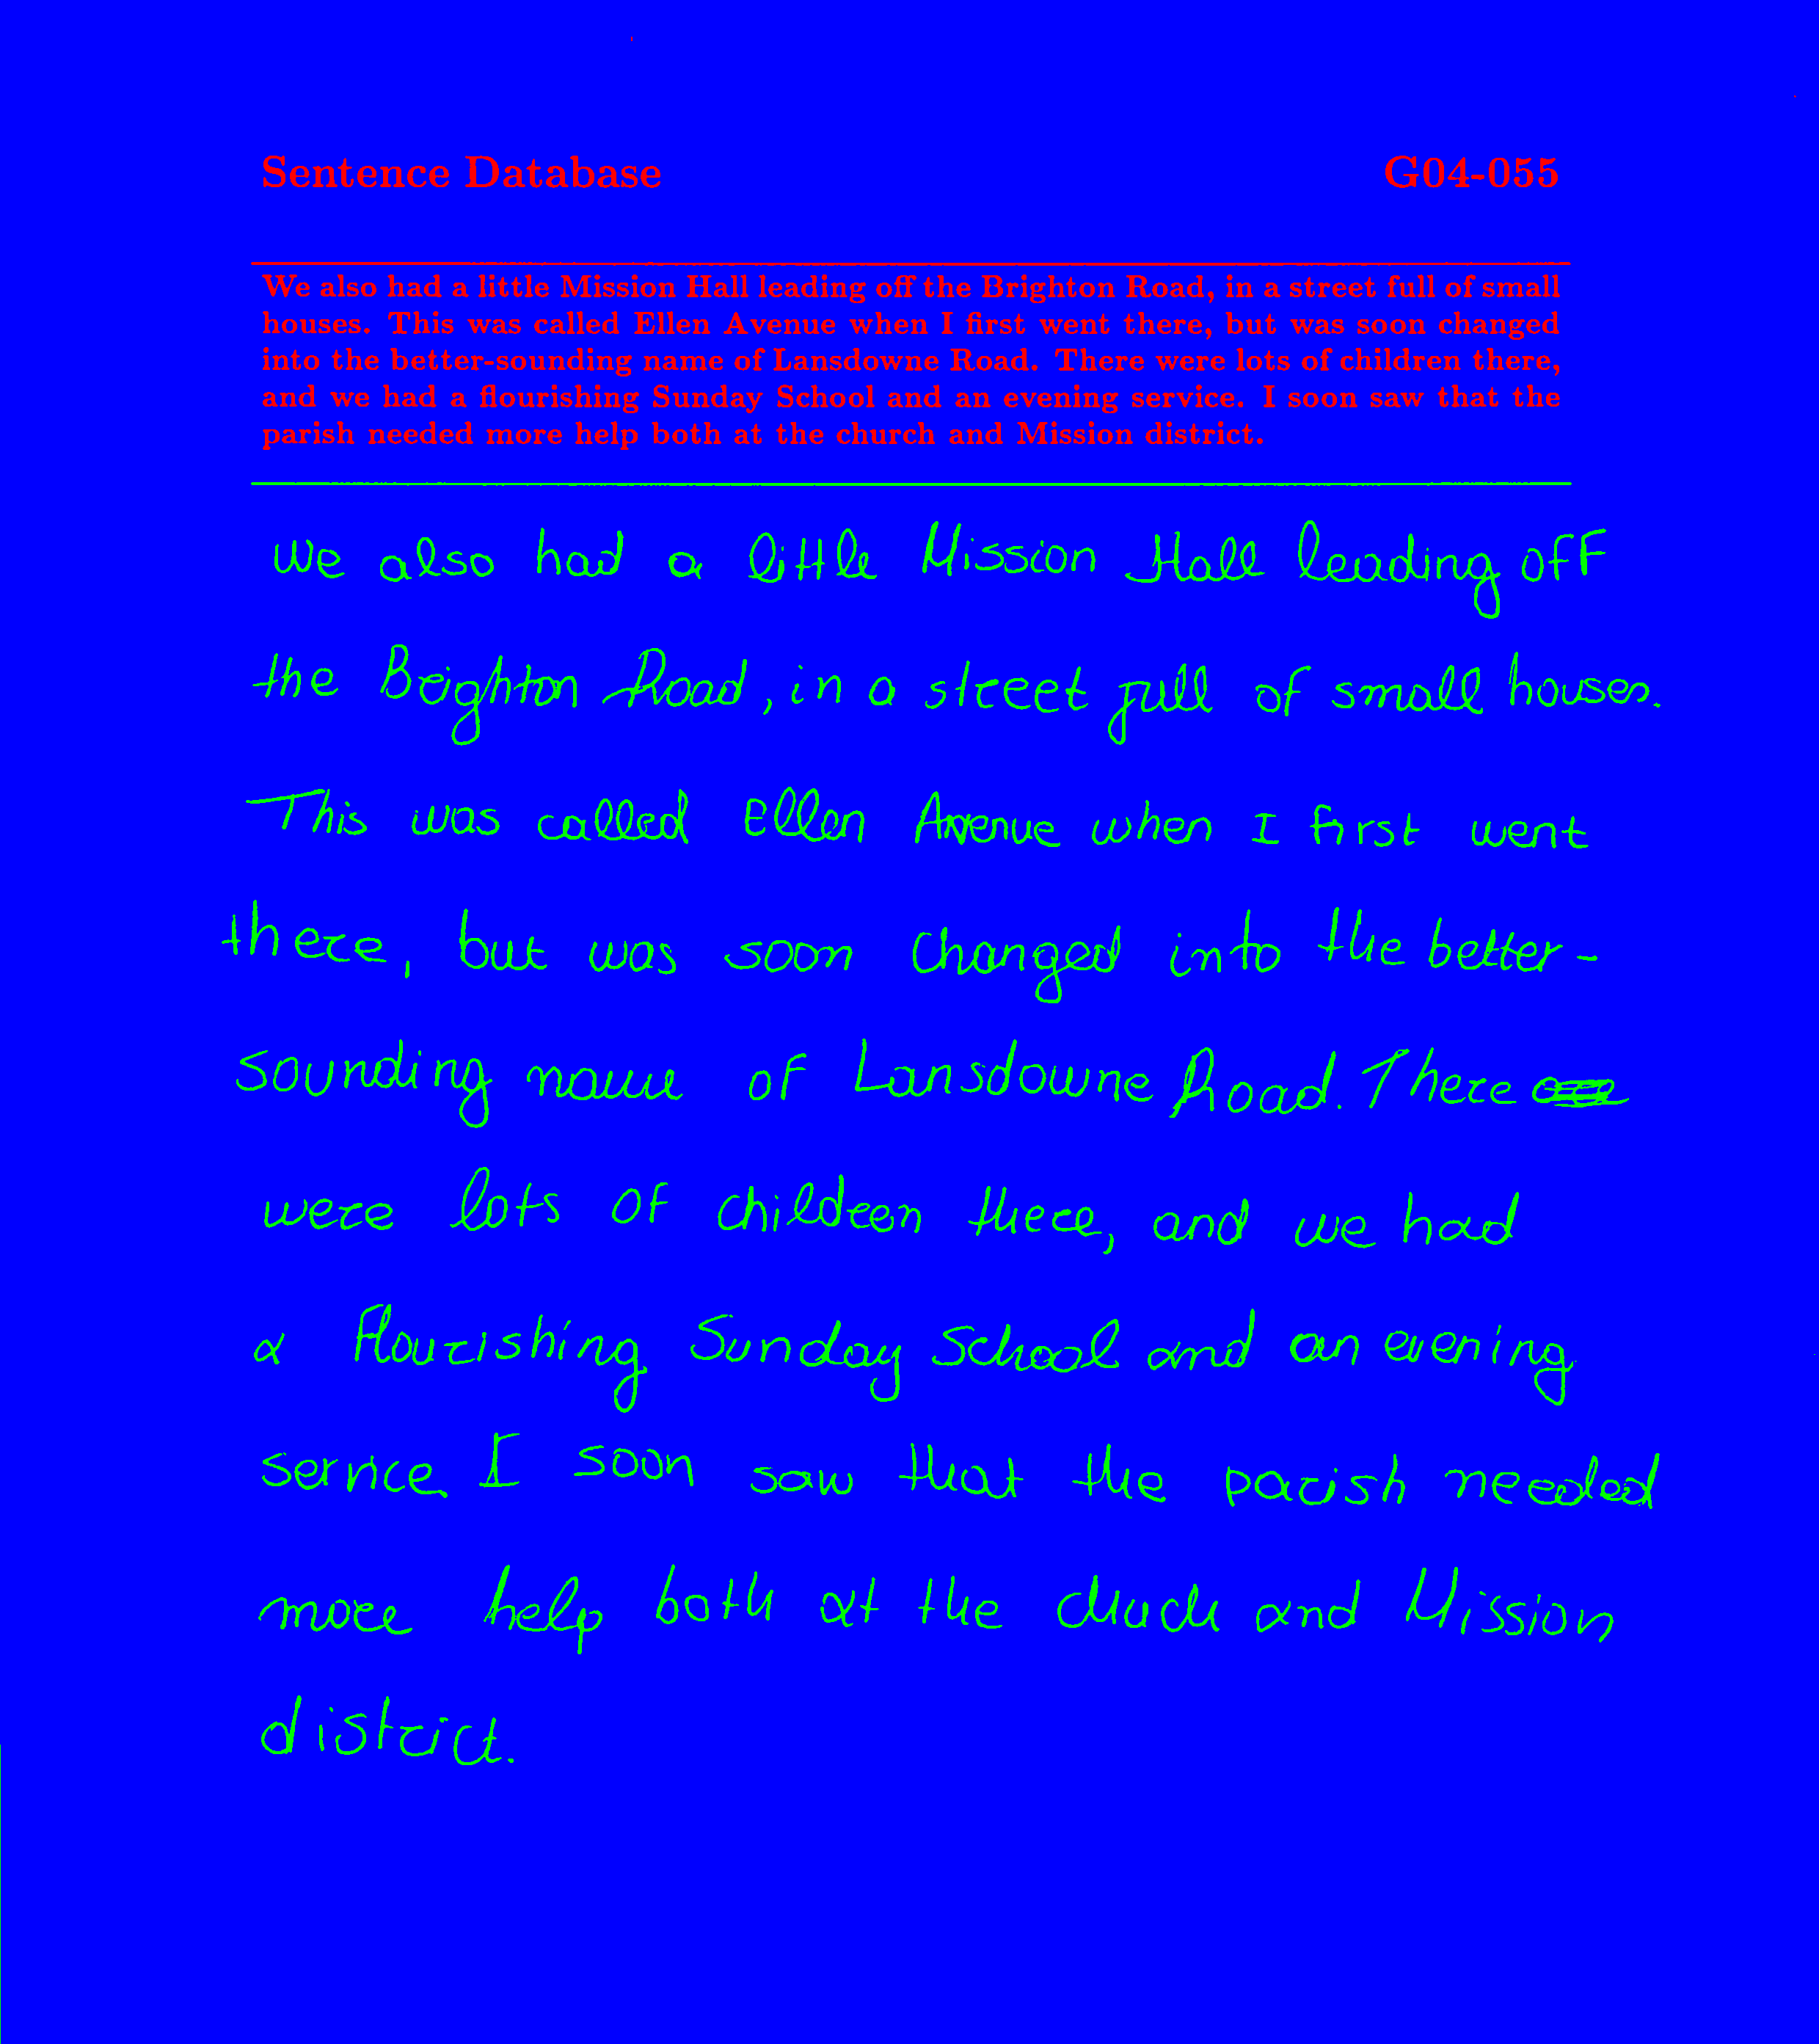 Sentence Database G04-055
We also had a little Mission Hall leading off the Brighton Road, in a street full of small
houses. This was called Ellen Avenue when I first went there, but was soon changed
into the better-sounding name of Lansdowne Road. There were lots of children there,
and we had a flourishing Sunday School and an evening service. I soon saw that the
parish needed more help both at the church and Mission district.
We also had a little Mission Hall leading off
the Brighton Road, in a street full of small houses.
This was called Ellen Avenue when I first went
there, but was soon changed into the better-
sounding name of Lansdowne Road. There
were lots of children there, and we had
a flourishing Sunday School and an evening
service. I soon saw that the parish needed
more help both at the church and Mission
district.